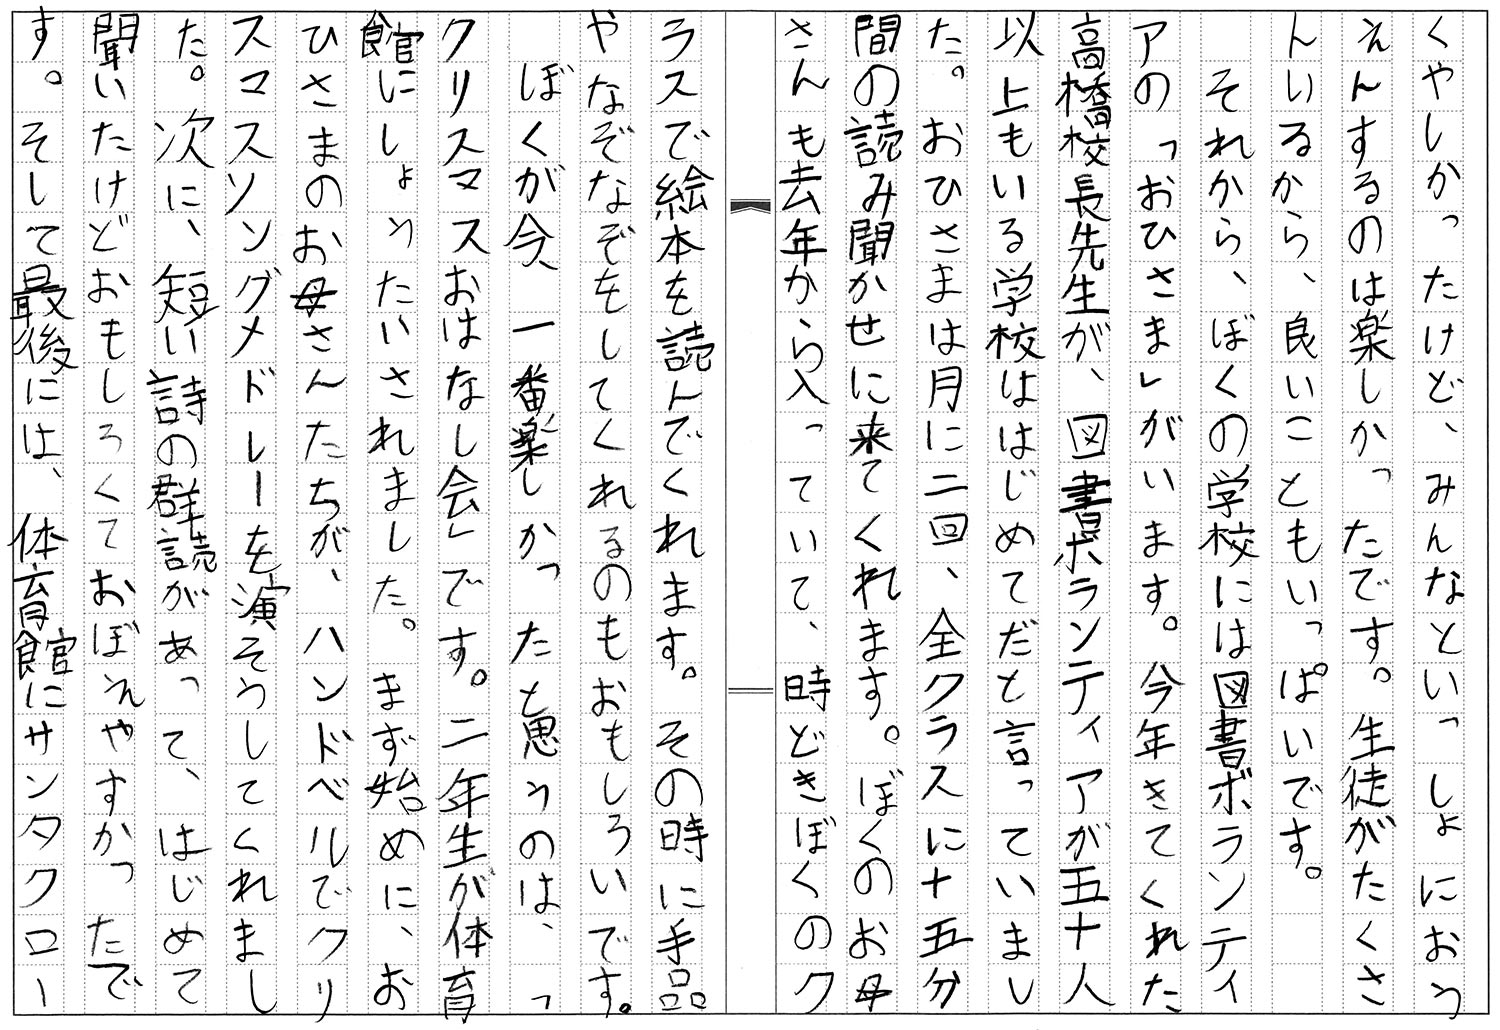 くやしかったけど、みんなといっしょにおう
えんするのは楽しかったです。生徒がたくさ
んいるから、良いこともいっぱいです。
それから、ぼくの学校には図書ボランティ
アの「おひさま」がいます。今年きてくれた
高橋校長先生が、図書ボランティアが五十人
以上もいる学校ははじめてだと言っていまし
た。おひさまは月に二回、全クラスに十五分
間の読み聞かせに来てくれます。ぼくのお母
さんも去年から入っていて、時どきぼくのク
ラスで絵本を読んでくれます。その時に手品
やなぞなぞをしてくれるのもおもしろいです。
ぼくが今、一番楽しかったと思うのは、「
クリスマスおはなし会」です。二年生が体育
館にしょうたいされました。まず始めに、お
ひさまのお母さんたちが、ハンドベルでクリ
スマスソングメドレーを演そうしてくれまし
た。次に、短い詩の群読があって、はじめて
聞いたけどおもしろくておぼえやすかったで
す。そして最後には、体育館にサンタクロー